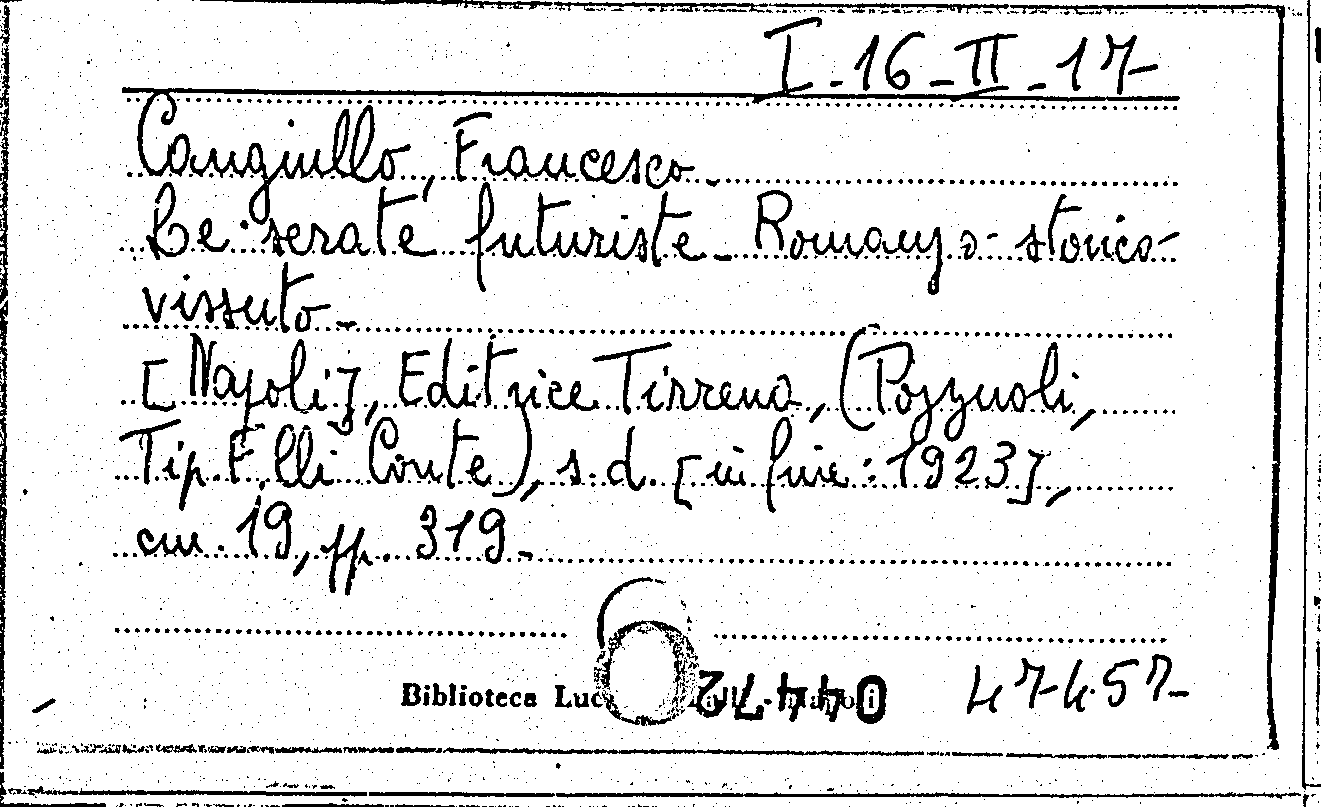 I-16-II-17-
Cangiullo, Francesco.
Le serate futuriste. Romanzo storico-
vissuto.
[Napoli], Editrice Tirrena, (Pozzuoli,
Tip. F.lli Conte), s.d. [in fine: 1923],
cm. 19, pp. 319.
Biblioteca
47457-